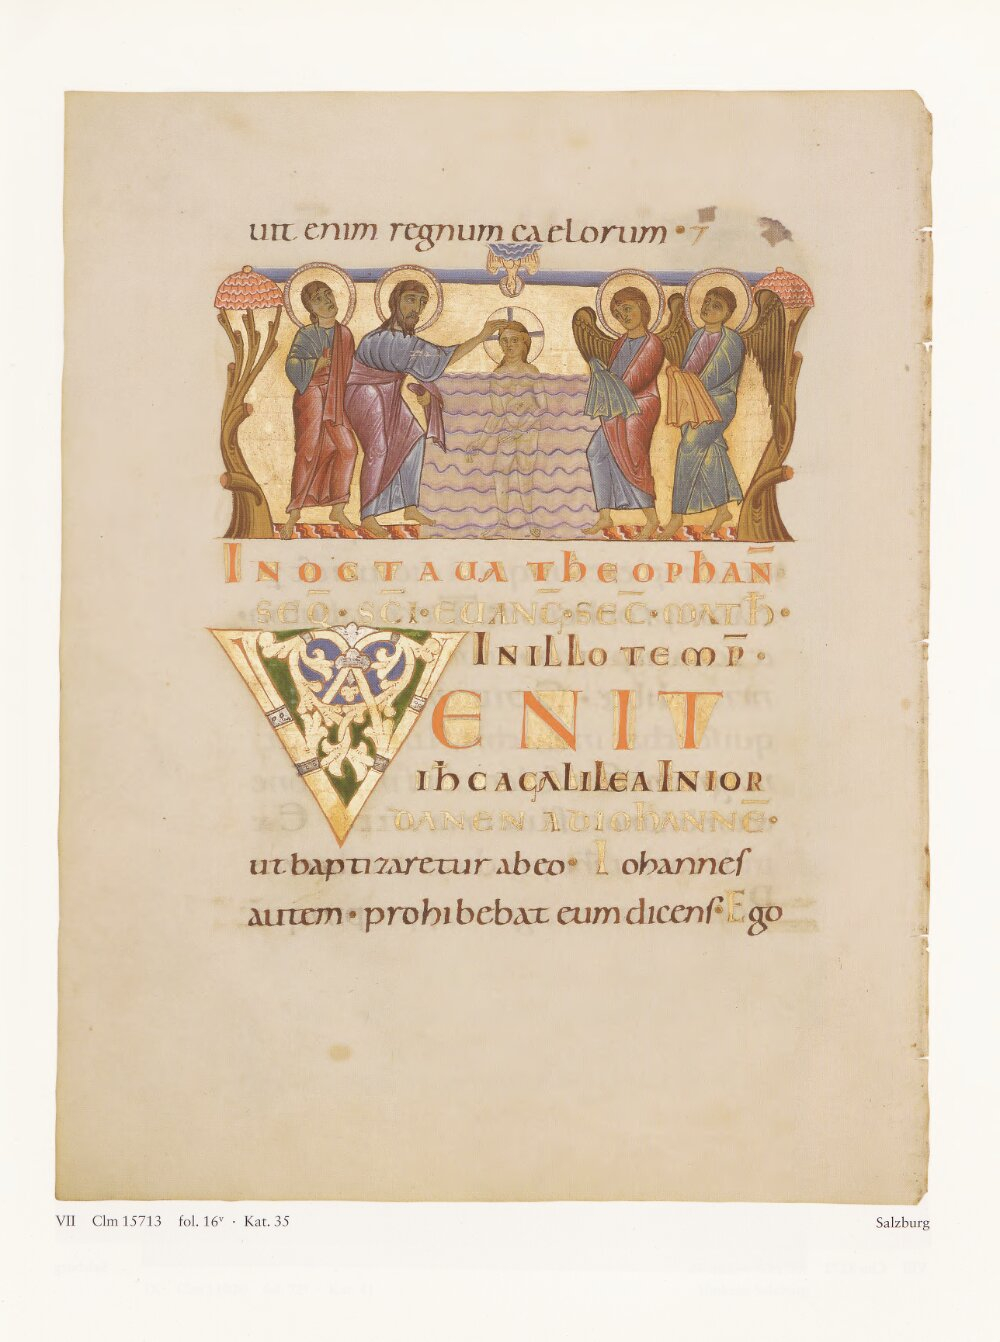 uit enim regnum caelorum · 7
IN OCTAUA THEOPHAN̄
SEQ̄ · SC̄I · EUANḠ · SEC̄ · MATH̄ ·
IN ILLO TEMP̄ ·
VENIT
IH̄C A GALILEA IN IOR
DANEN AD IOHANNĒ ·
ut baptizaretur ab eo · Iohannes
autem · prohibebat eum dicens · Ego
VII Clm 15713 fol. 16ᵛ · Kat. 35
Salzburg